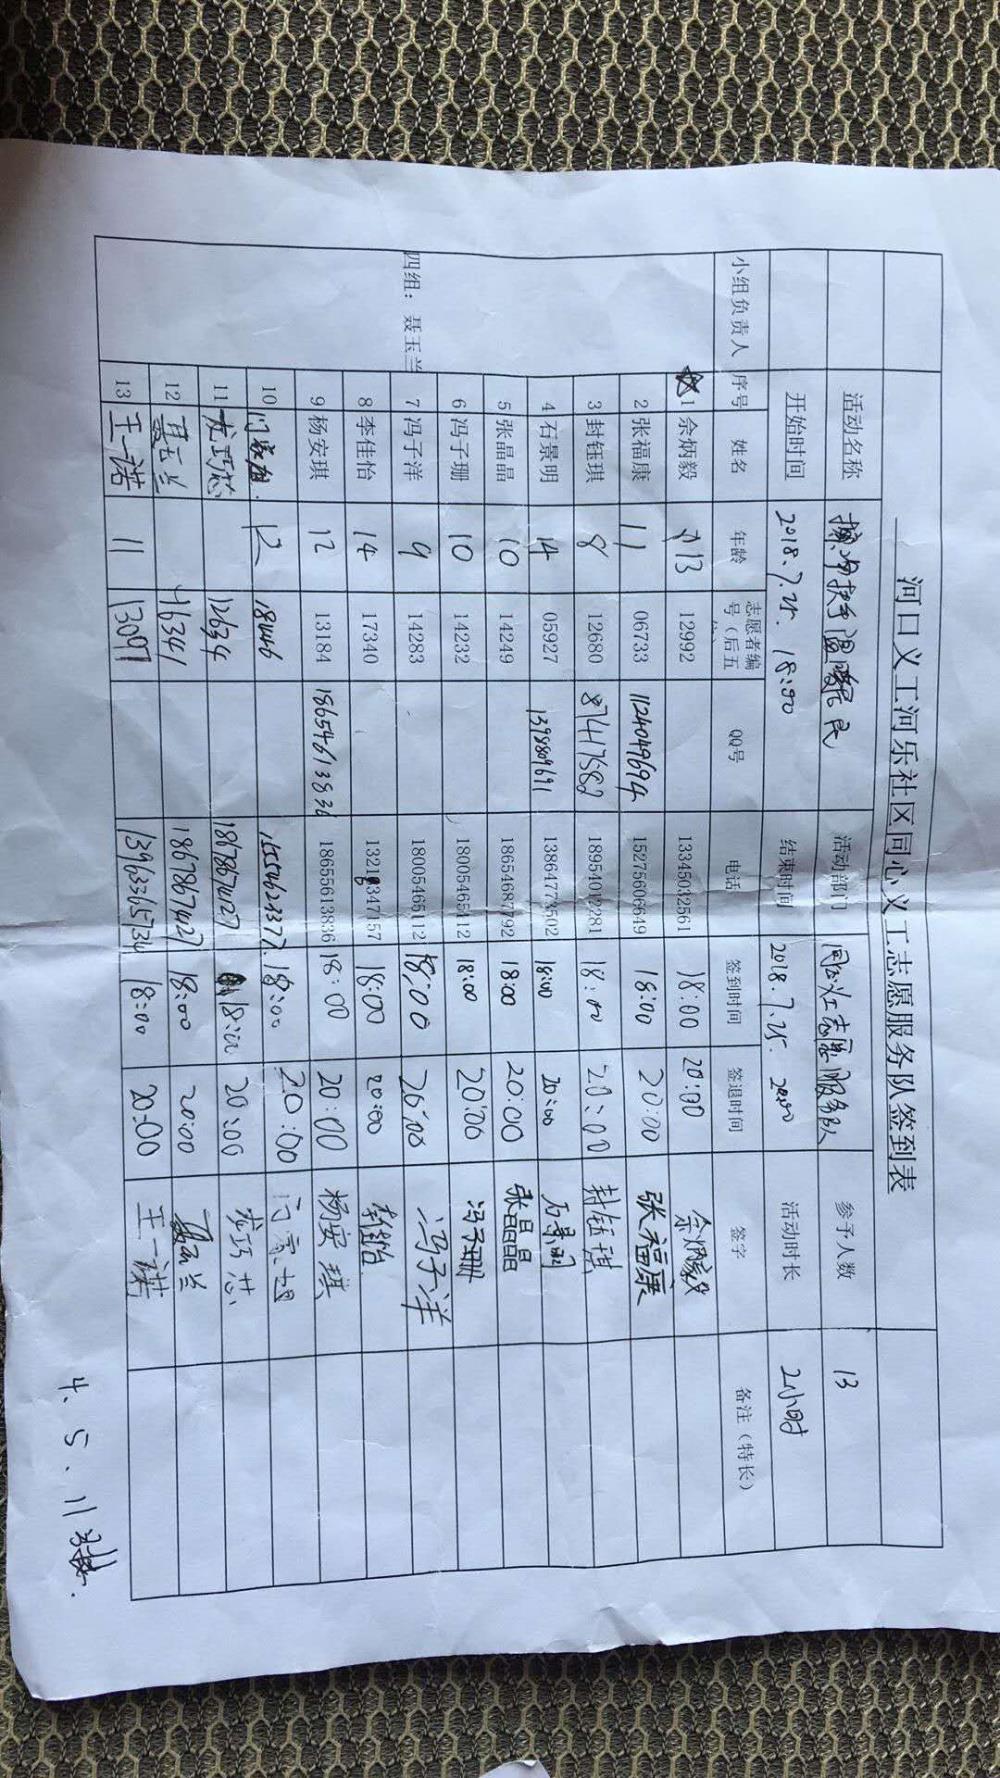 河口义工河乐社区同心义工志愿服务队签到表
活动名称 活动部门 参予人数 13
开始时间 2018.7.25. 18:00 结束时间 2018.7.25. 20:00 活动时长 2小时
小组负责人 序号 姓名 年龄 志愿者编号（后五 QQ号 电话 签到时间 签退时间 签字 备注（特长）
四组：聂玉兰
1 余炳毅 13 12992 13345032561 18:00 20:00 余炳毅
2 张福康 11 06733 1124049694 15275606649 18:00 20:00 张福康
3 封钰琪 8 12680 87417582 18954022281 18:00 20:00 封钰琪
4 石景明 14 05927 1398809691 13864773502 18:00 20:00 石景明
5 张晶晶 10 14249 18654687792 18:00 20:00 张晶晶
6 冯子珊 10 14232 18005465112 18:00 20:00 冯子珊
7 冯子洋 9 14283 18005465112 18:00 20:00 冯子洋
8 李佳怡 14 17340 18:00 20:00 李佳怡
9 杨安琪 12 13184 18654613836 18655613836 18:00 20:00 杨安琪
10 12 18:00 20:00
11 12634 18678674127 18:00 20:00
12 聂玉兰 46341 18678674127 18:00 20:00 聂玉兰
13 王一诺 11 13097 13963365734 18:00 20:00 王一诺
4、5、11